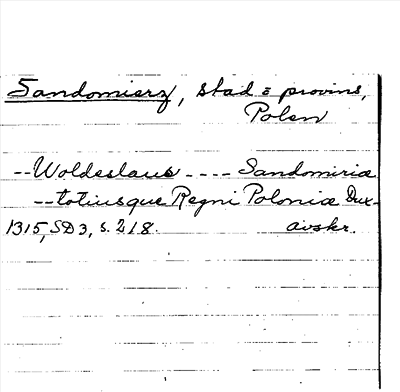 Sandomierz, stad & provins,
Polen
--Woldeslaus ---- Sandomiriæ
--totiusque Regni Poloniæ Dux-
1315, SD 3, s. 218. avskr.